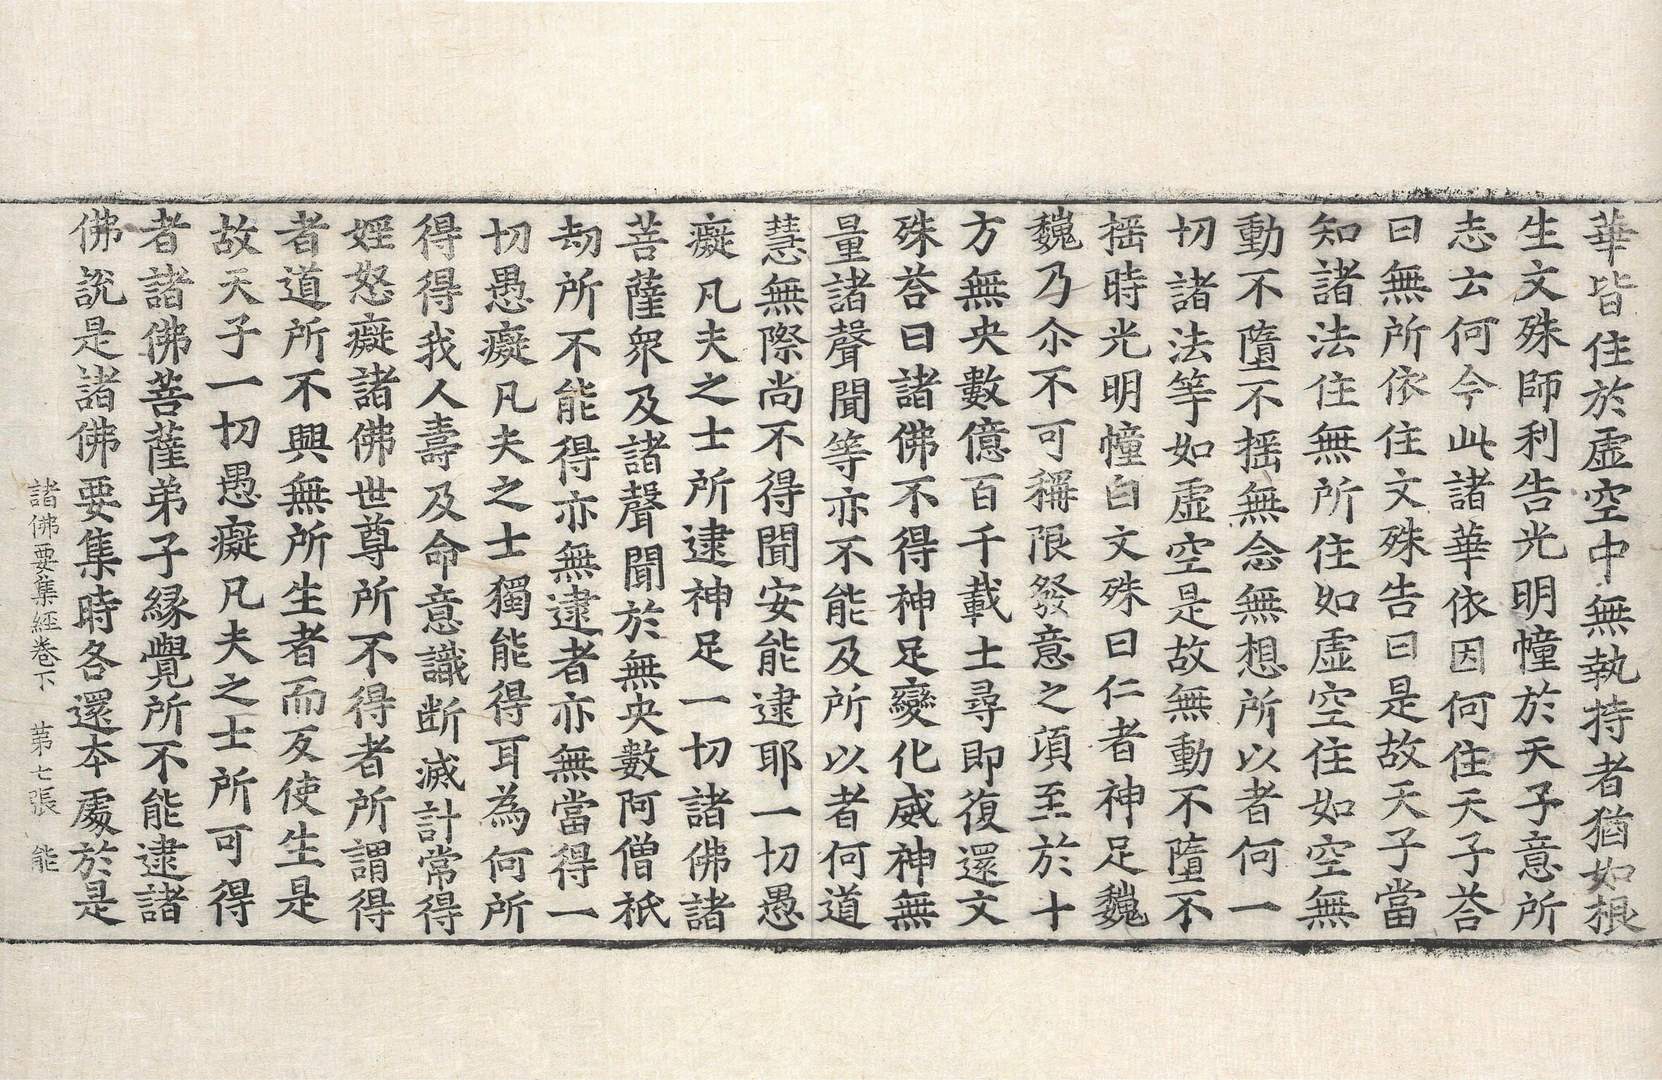 華皆住於虛空中無執持者猶如根
生文殊師利告光明幢於天子意所
志云何今此諸華依因何住天子荅
曰無所依住文殊告曰是故天子當
知諸法住無所住如虛空住如空無
動不墮不搖無念無想所以者何一
切諸法等如虛空是故無動不墮不
搖時光明幢白文殊曰仁者神足巍
巍乃尒不可稱限發意之頃至於十
方無央數億百千載土尋即復還文
殊荅曰諸佛不得神足變化威神無
量諸聲聞等亦不能及所以者何道
慧無際尚不得聞安能逮耶一切愚
癡凡夫之士所逮神足一切諸佛諸
菩薩眾及諸聲聞於無央數阿僧祇
劫所不能得亦無逮者亦無當得一
切愚癡凡夫之士獨能得耳為何所
得得我人壽及命意識斷滅計常得
婬怒癡諸佛世尊所不得者所謂得
者道所不興無所生者而反使生是
故天子一切愚癡凡夫之士所可得
者諸佛菩薩弟子緣覺所不能逮諸
佛說是諸佛要集時各還本處於是
諸佛要集經卷下 第七張 能